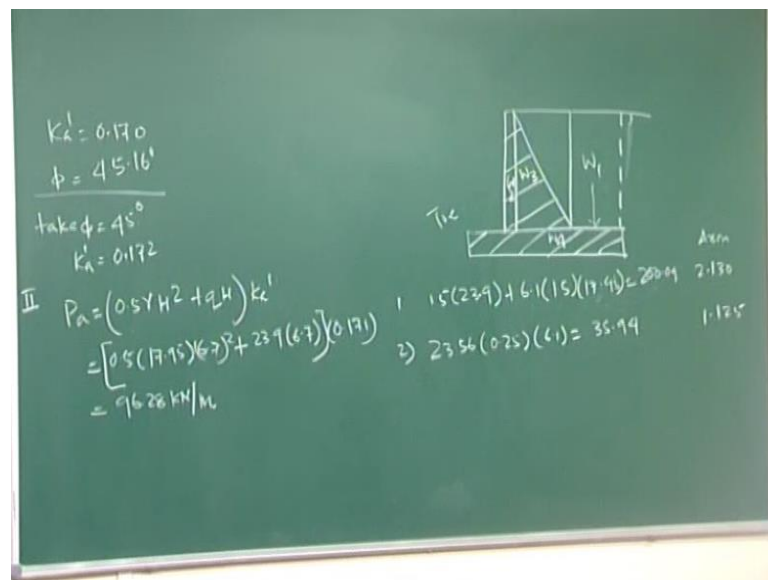 Ka' = 0.170
ϕ = 45.16°
take ϕ = 45°
Ka' = 0.172
II Pa = (0.5γH² + qH) Ka'
= [0.5(17.95)(6.7)² + 23.9(6.7)](0.171)
= 96.28 KN/m
W3
W1
Toe
Arm
1 1.5(23.9) + 6.1(1.5)(17.95) = 200.09 2.130
2) 23.56(0.25)(6.1) = 35.94 1.125